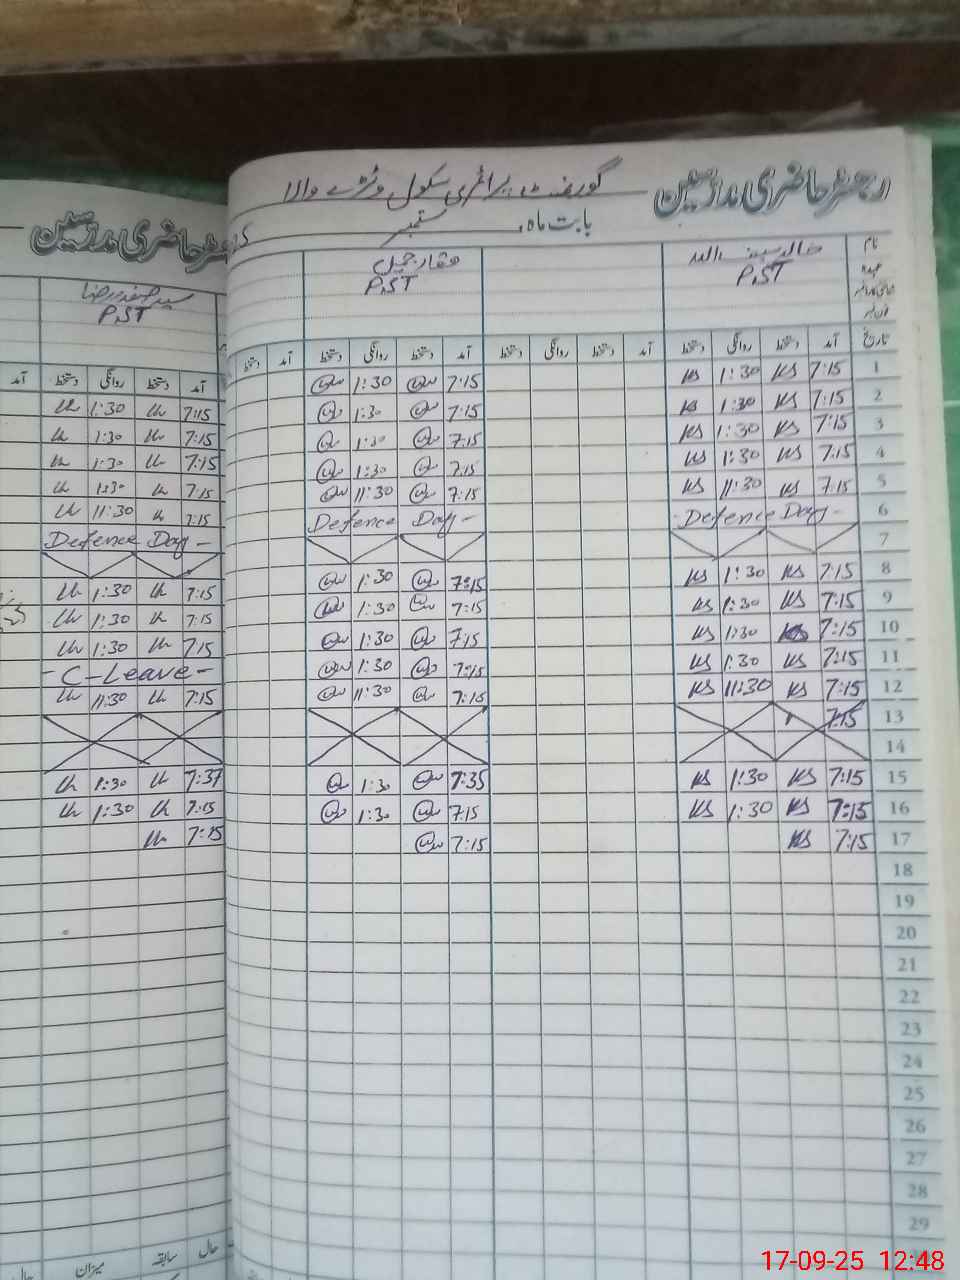 رجسٹر حاضری مدرسین
گورنمنٹ پرائمری سکول وڑے والا
بابت ماہ ستمبر
نام
عہدہ
تاریخ
P.ST
P.ST
آمد دستخط روانگی دستخط آمد دستخط روانگی دستخط آمد دستخط روانگی دستخط آمد دستخط
1 7:15 KS 1:30 KS 7:15 1:30
2 7:15 KS 1:30 KS 7:15 1:30
3 7:15 KS 1:30 KS 7:15 1:30
4 7:15 KS 1:30 KS 7:15 1:30
5 7:15 KS 11:30 KS 7:15 11:30
6 -Defence Day- Defence Day-
7
8 7:15 KS 1:30 KS 7:15 1:30
9 7:15 KS 1:30 KS 7:15 1:30
10 7:15 KS 1:30 KS 7:15 1:30
11 7:15 KS 1:30 KS 7:15 1:30
12 7:15 KS 11:30 KS 7:15 11:30
13 7:15
14
15 7:15 KS 1:30 KS 7:35 1:30
16 7:15 KS 1:30 KS 7:15 1:30
17 7:15 KS 7:15
18
19
20
21
22
23
24
25
26
27
28
29
رجسٹر حاضری مدرسین
سید صفدر رضا
P.ST
آمد دستخط روانگی دستخط آمد
7:15 1:30
7:15 1:30
7:15 1:30
7:15 1:30
7:15 11:30
Defence Day-
7:15 1:30
7:15 1:30
7:15 1:30
-C-Leave-
7:15 11:30
7:37 1:30
7:15 1:30
7:15
حال سابقہ میزان حال
17-09-25 12:48